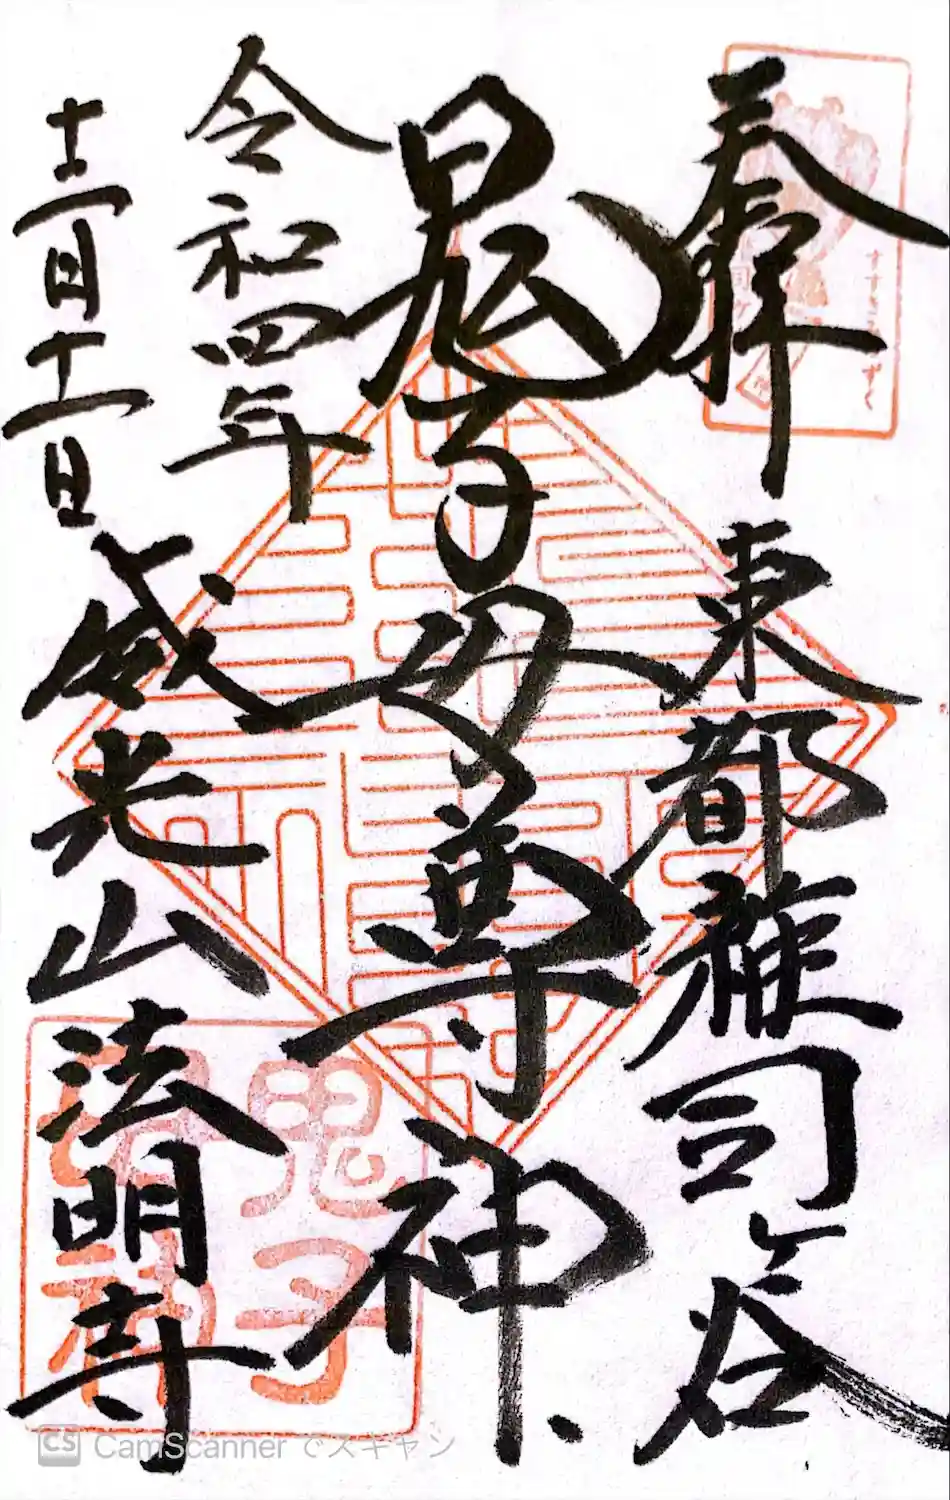 奉拝
東都雑司ヶ谷
鬼子母尊神
令和四年
十二月十一日
威光山法明寺
すすきみみずく
鬼子
CS CamScanner でスキャン